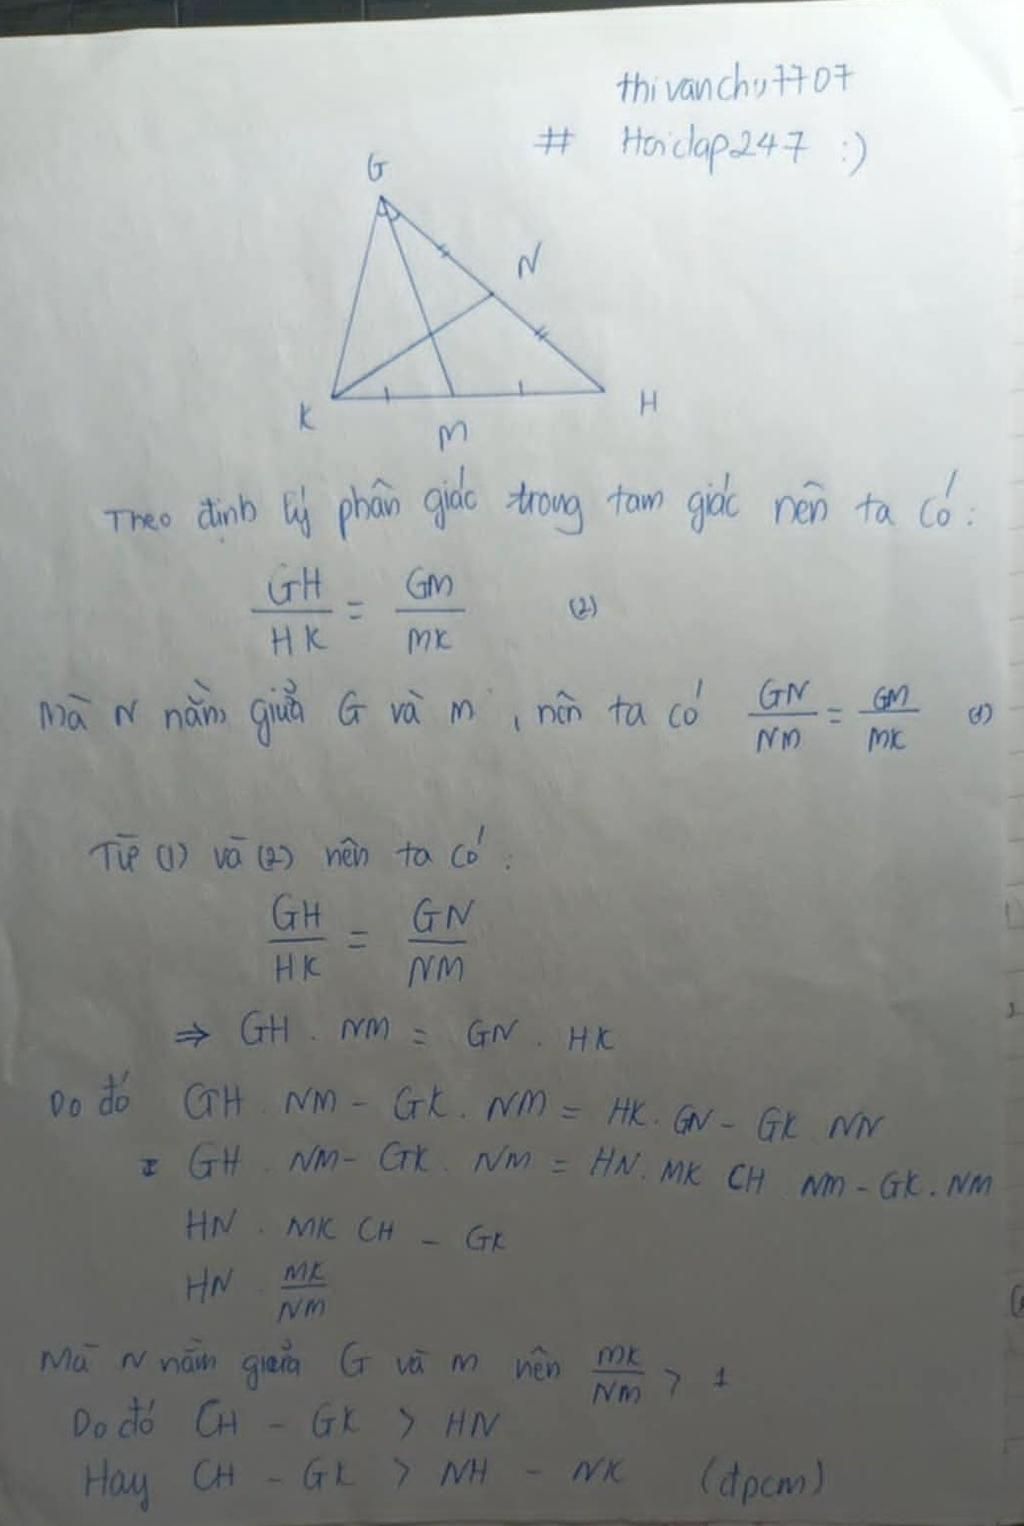 thivanchu7707
# Hoidap247 :)
G
N
K
M
H
Theo định lý phân giác trong tam giác nên ta có:
GH/HK = GM/MK (2)
Mà N nằm giữa G và M, nên ta có GN/NM = GM/MK (1)
Từ (1) và (2) nên ta có:
GH/HK = GN/NM
⇒ GH . NM = GN . HK
Do đó GH . NM - GK . NM = HK . GN - GK NN
GH . NM - GK . NM = HN . MK CH NM - GK . NM
HN . MK CH - GK
HN . MK/NM
Mà N nằm giữa G và M nên MK/NM > 1
Do đó CH - GK > HN
Hay CH - GK > NH - NK (đpcm)